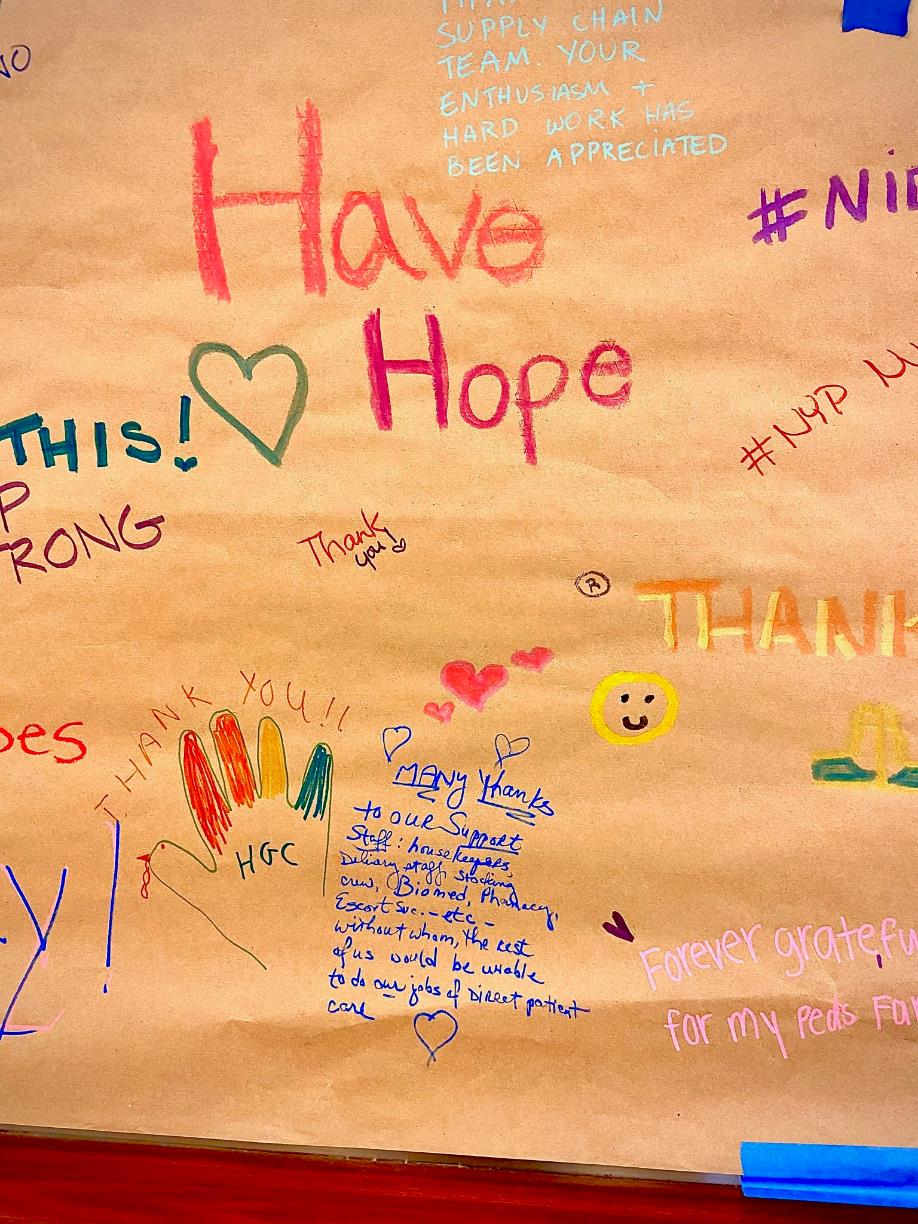 SUPPLY CHAIN
TEAM. YOUR
ENTHUSIASM +
HARD WORK HAS
BEEN APPRECIATED
Have
Hope
#NYP
THIS!
RONG
Thank
you!
R
THANK
THANK YOU!!
HGC
MANY Thanks
to OUR Support
Staff: housekeepers,
Delivery staff, Stocking
crew, Biomed, Pharmacy,
Escort svc. - etc -
without whom, the rest
of us would be unable
to do our jobs of Direct patient
care
Forever gratefu
for my Peds Fa